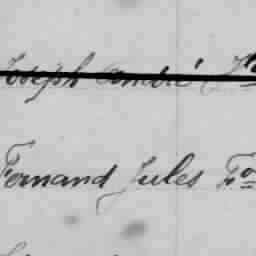 Joseph André Fo
Fernand Jules Fo